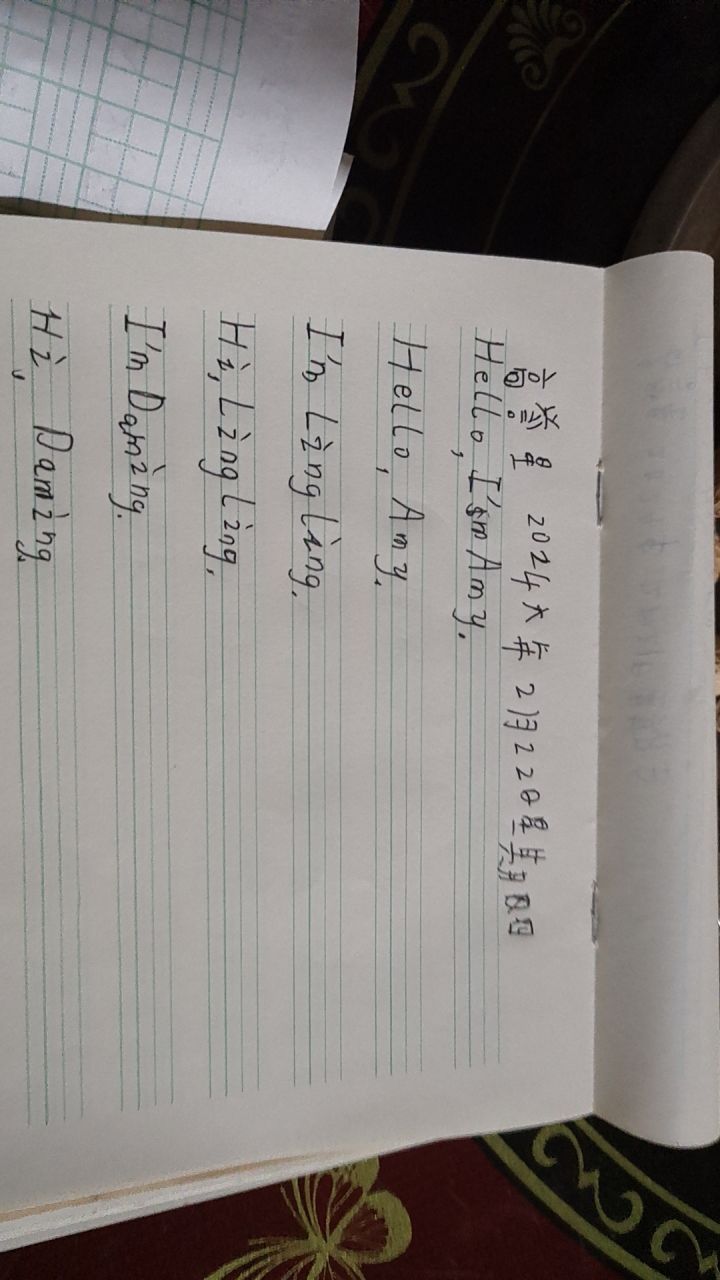 高 星 2024年2月22日星期四
Hello, I'm Amy.
Hello, Amy.
I'm Lingling.
Hi, Lingling.
I'm Daming.
Hi, Daming.